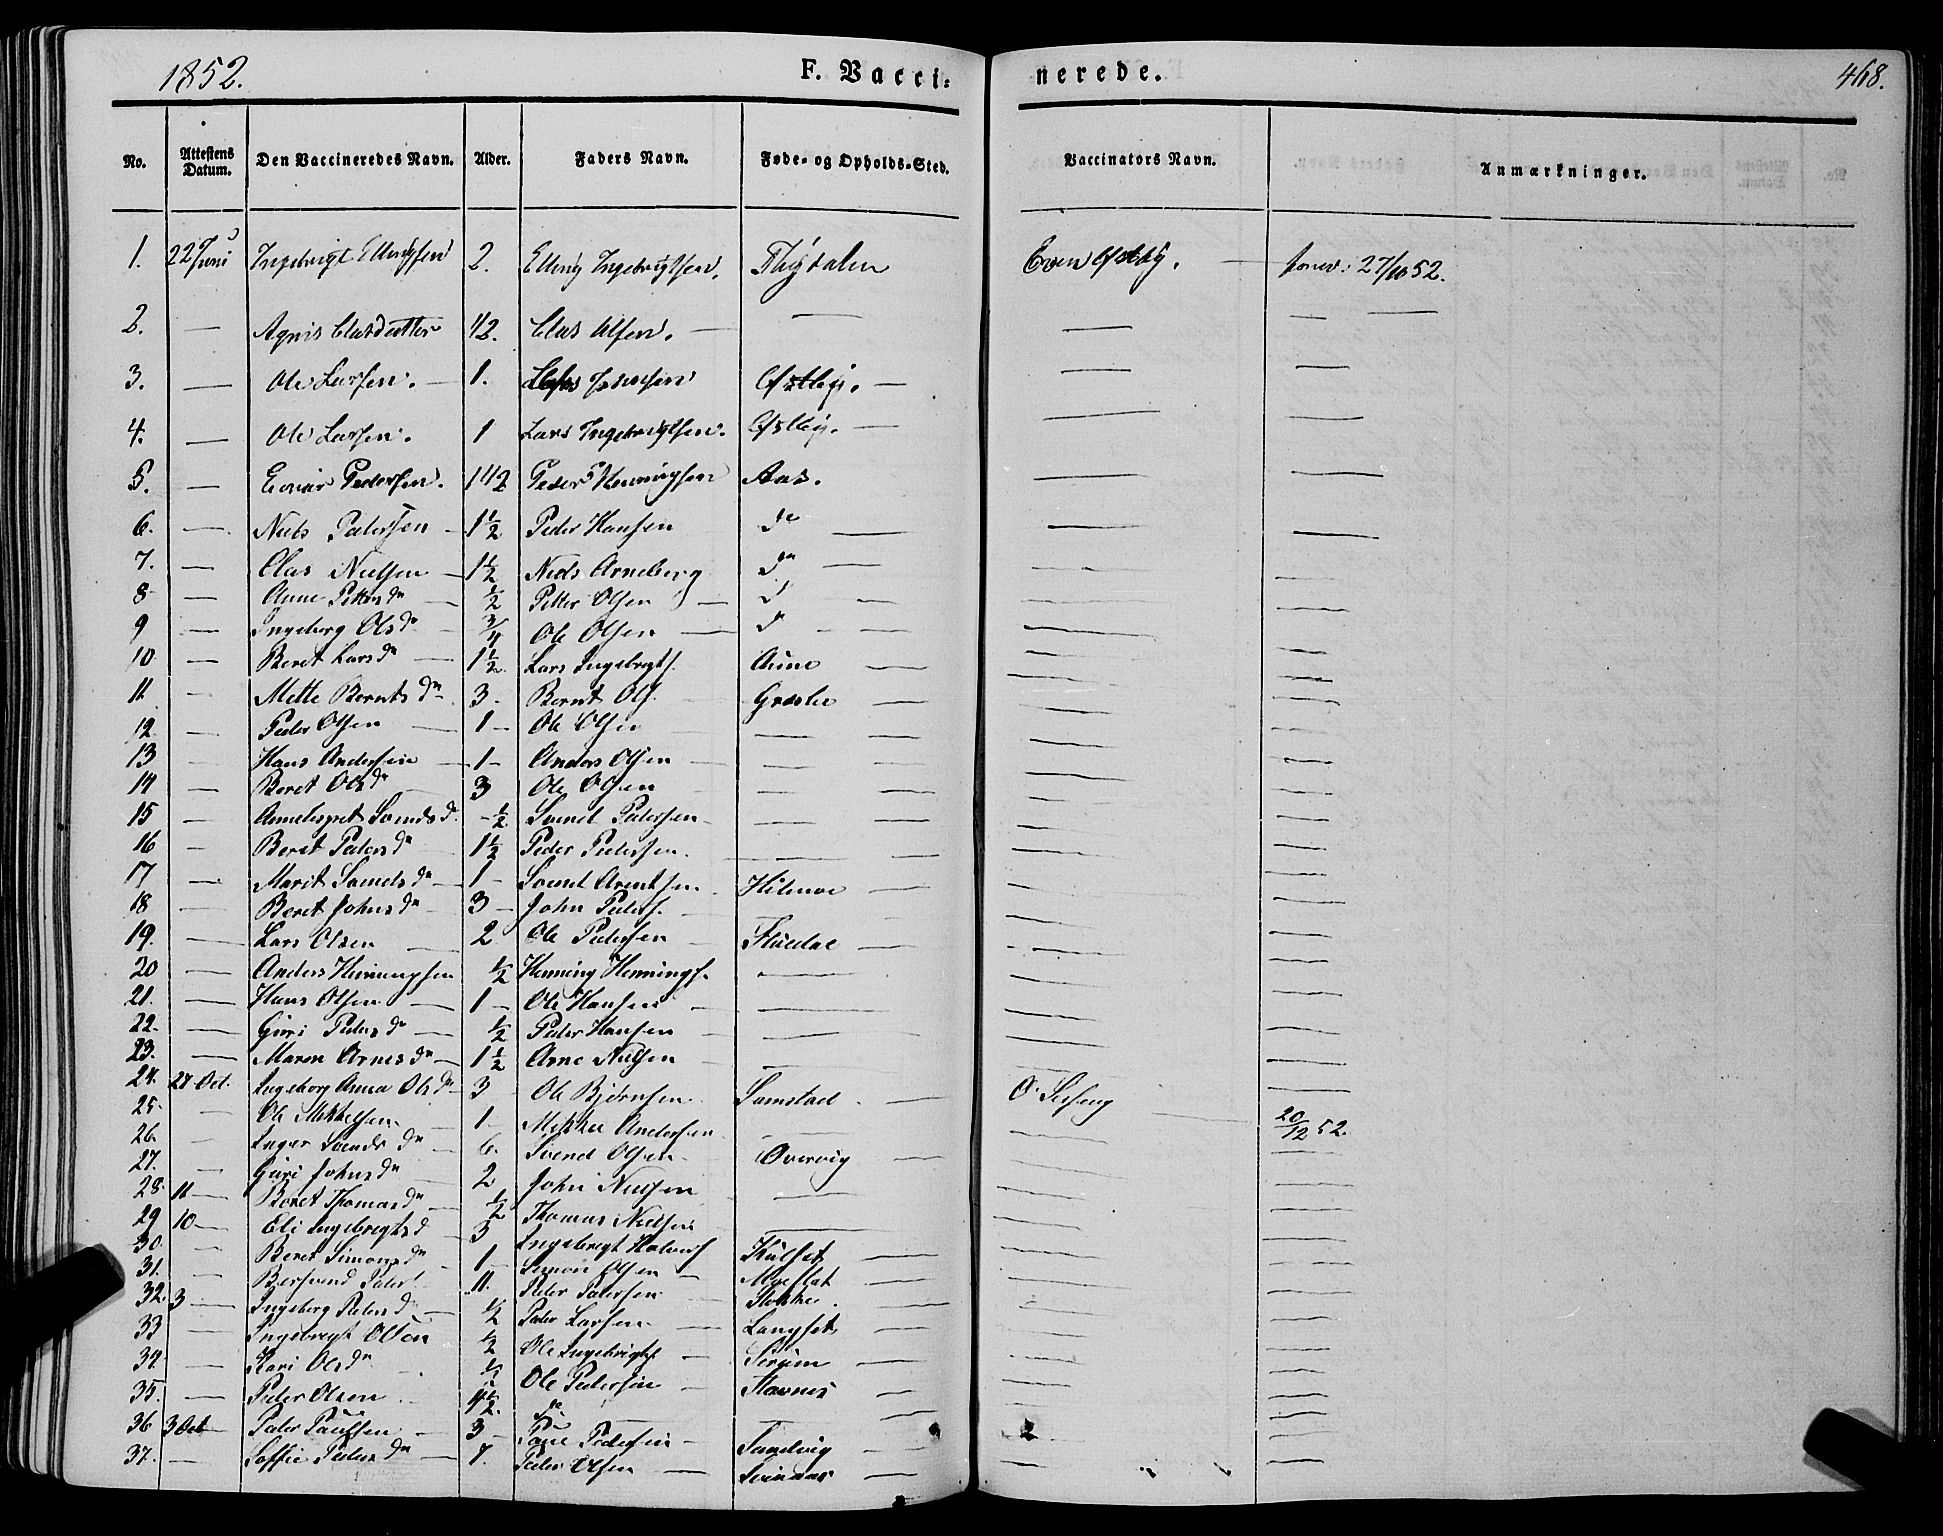 1852. F. Vacci: nerede. 468.
No. Attestens Datum. Den Vaccineredes Navn. Alder. Faders Navn. Føde- og Opholds-Sted. Vaccinators Navn. Anmærkninger.
1. 22 Juni Ingebrigt Ellingsen 2. Elling Ingebrigtsen. Thydalen Even Østby. — 27/10 52.
2. — Agnis Clasdatter 1/2. Clas Olsen. — — — — —
3. — Ole Larsen. — 1. Østby. — — —
4. — Ole Larsen. 1 Lars Ingebrigtsen. Østby. — — —
5. — Einar Pedersen. 1 1/2 Peder Henningsen Aas. — —
6. — Niels Pedersen — 1 1/2 Peder Hansen do — — —
7. — Clas Nielsen — 1 1/2 Niels Arneberg do — — —
8 — Anne Petters dr — 1/2 Petter Olsen — d — — —
9 — Ingeborg Ols dr — 3/4 Ole Olsen — d — — — —
10 — Beret Lars dr — 1 1/2 Lars Ingebrigts. Aune — — —
11. — Mette Bernts dr 3 - Bernt Ols. Græsli — — —
12 — Peder Olsen — 1 — Ole Olsen — — — —
13 — Hans Andersen — 1 — Anders Olsen — — — — —
14 — Beret Ols dr 3 Ole Olsen — — — — —
15 — Anneberget Svends dr - 1/2 Svend Pedersen — — — — —
16 — Beret Peders dr 1 1/2 Peder Pedersen. — — — —
17 — Marit Svends dr — 1 — Svend Arentsen Hilmoe — — —
18 — Beret Johns dr — 3 — John Peders. — — —
19. — Lars Olsen — 2 Ole Pedersen — — — —
20 — Anders Henningsen 1/2 Henning Hennings. — — —
21. — Hans Olsen — 1 — Ole Hansen — — — —
22. — Guri Peders dr — 1/2 Peder Hansen — — —
23. — Maren Arnes dr — 1 1/2 Arne Nielsen — — —
24. 27 Oct. Ingeborg Anna Ols dr — 3 Ole Bjørnsen Samstad. — —
25. — Ole Mikkelsen 1 — Mikkel Andersen — — 20/12 52.
26. — Inger Svends dr — 6. Svend Olsen — Overvig — — —
27. — Guri Johns dr 2 John Nielsen — — —
28. 11 — Beret Thomas dr 1/2 Thomas Nielsen — — —
29 10 — Eli Ingebrigts d 3 Ingebrigt Halvors — — —
30. — Beret Simons dr 1 — Simon Olsen — — —
31. — Bersvend Peders. 11. Peder Pedersen — — —
32. 3 — Ingeborg Peders d — 1/2 Peder Larsen — — — —
33 — Ingebrigt Olsen 1/2 Ole Ingebrigts — Langset — — —
34. — Kari Ols dr 1/2 Ole Pedersen — — —
35. — Peder Olsen do — Stavnes — — —
36 3 Oct Peder Paulsen — 3 — Pedersen — Sandvig — —
37. — Soffie Peders dr — 7. Peder Olsen — Svinaas — — —